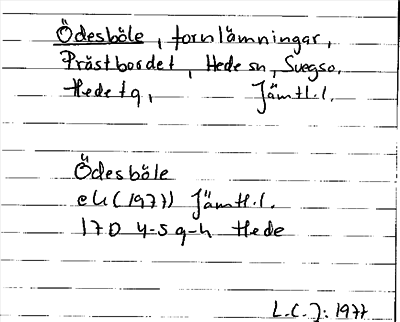 Ödesböle, fornlämningar,
Prästbordet, Hede sn, Svegs o.
Hede tg, Jämtl.l.
Ödesböle
ek (1977) Jämtl.l.
17D 4-5 g-h Hede
L.C.J: 1977